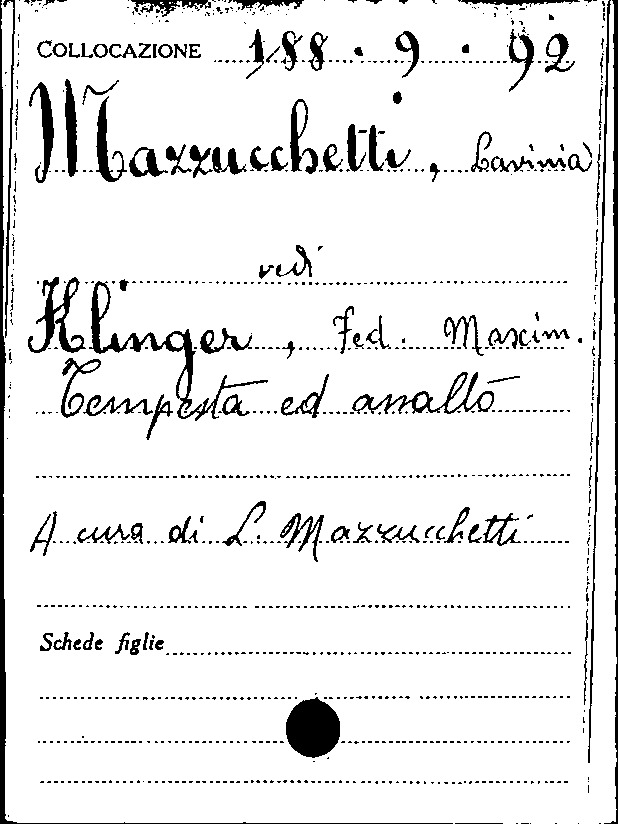 COLLOCAZIONE 188 . 9 . 92
Mazzucchetti, Lavinia
vedi
Klinger, Fed. Maxim.
Tempesta ed assalto
A cura di L. Mazzucchetti
Schede figlie